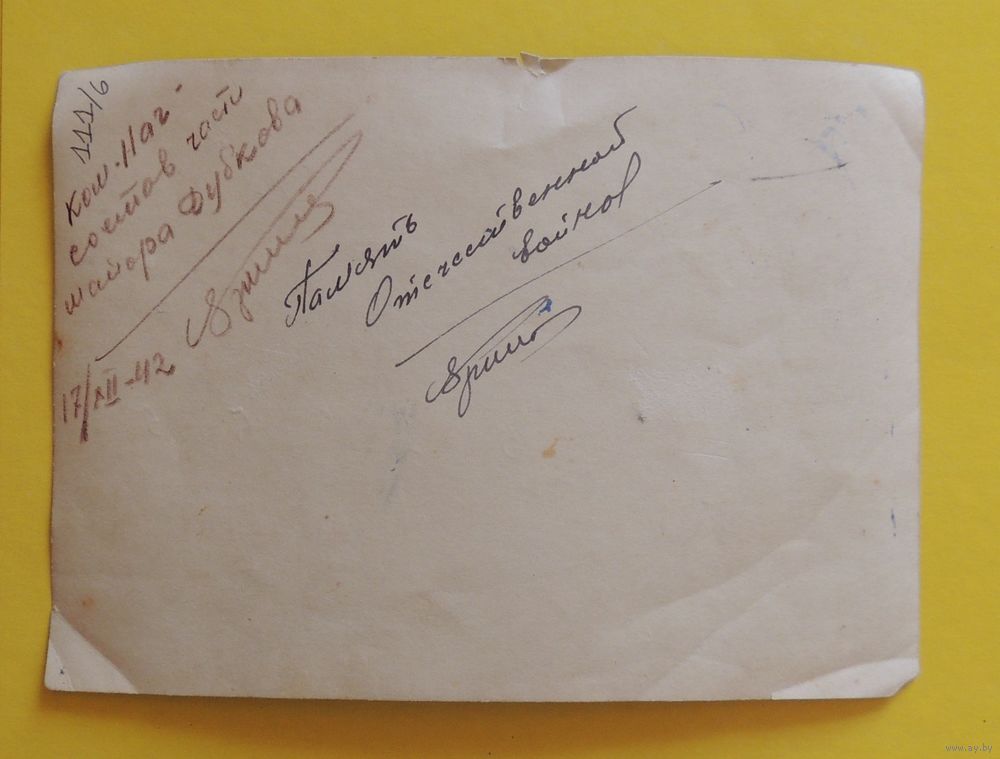 111/6
ком. нач-
состав части
майора Дубкова
17/XII-42
Память
Отечественной
войной
www.ay.by